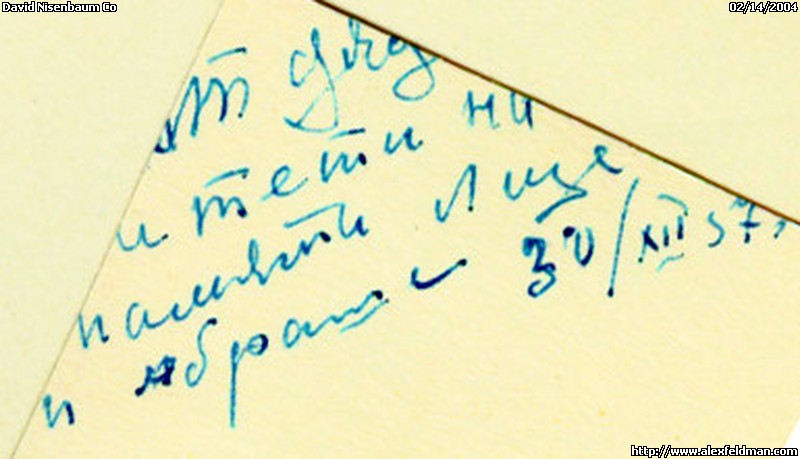 David Nisenbaum Co
02/14/2004
От дяд
и тети на
память Люце
и Абраше 30/XII 57г
http://www.alexfeldman.com